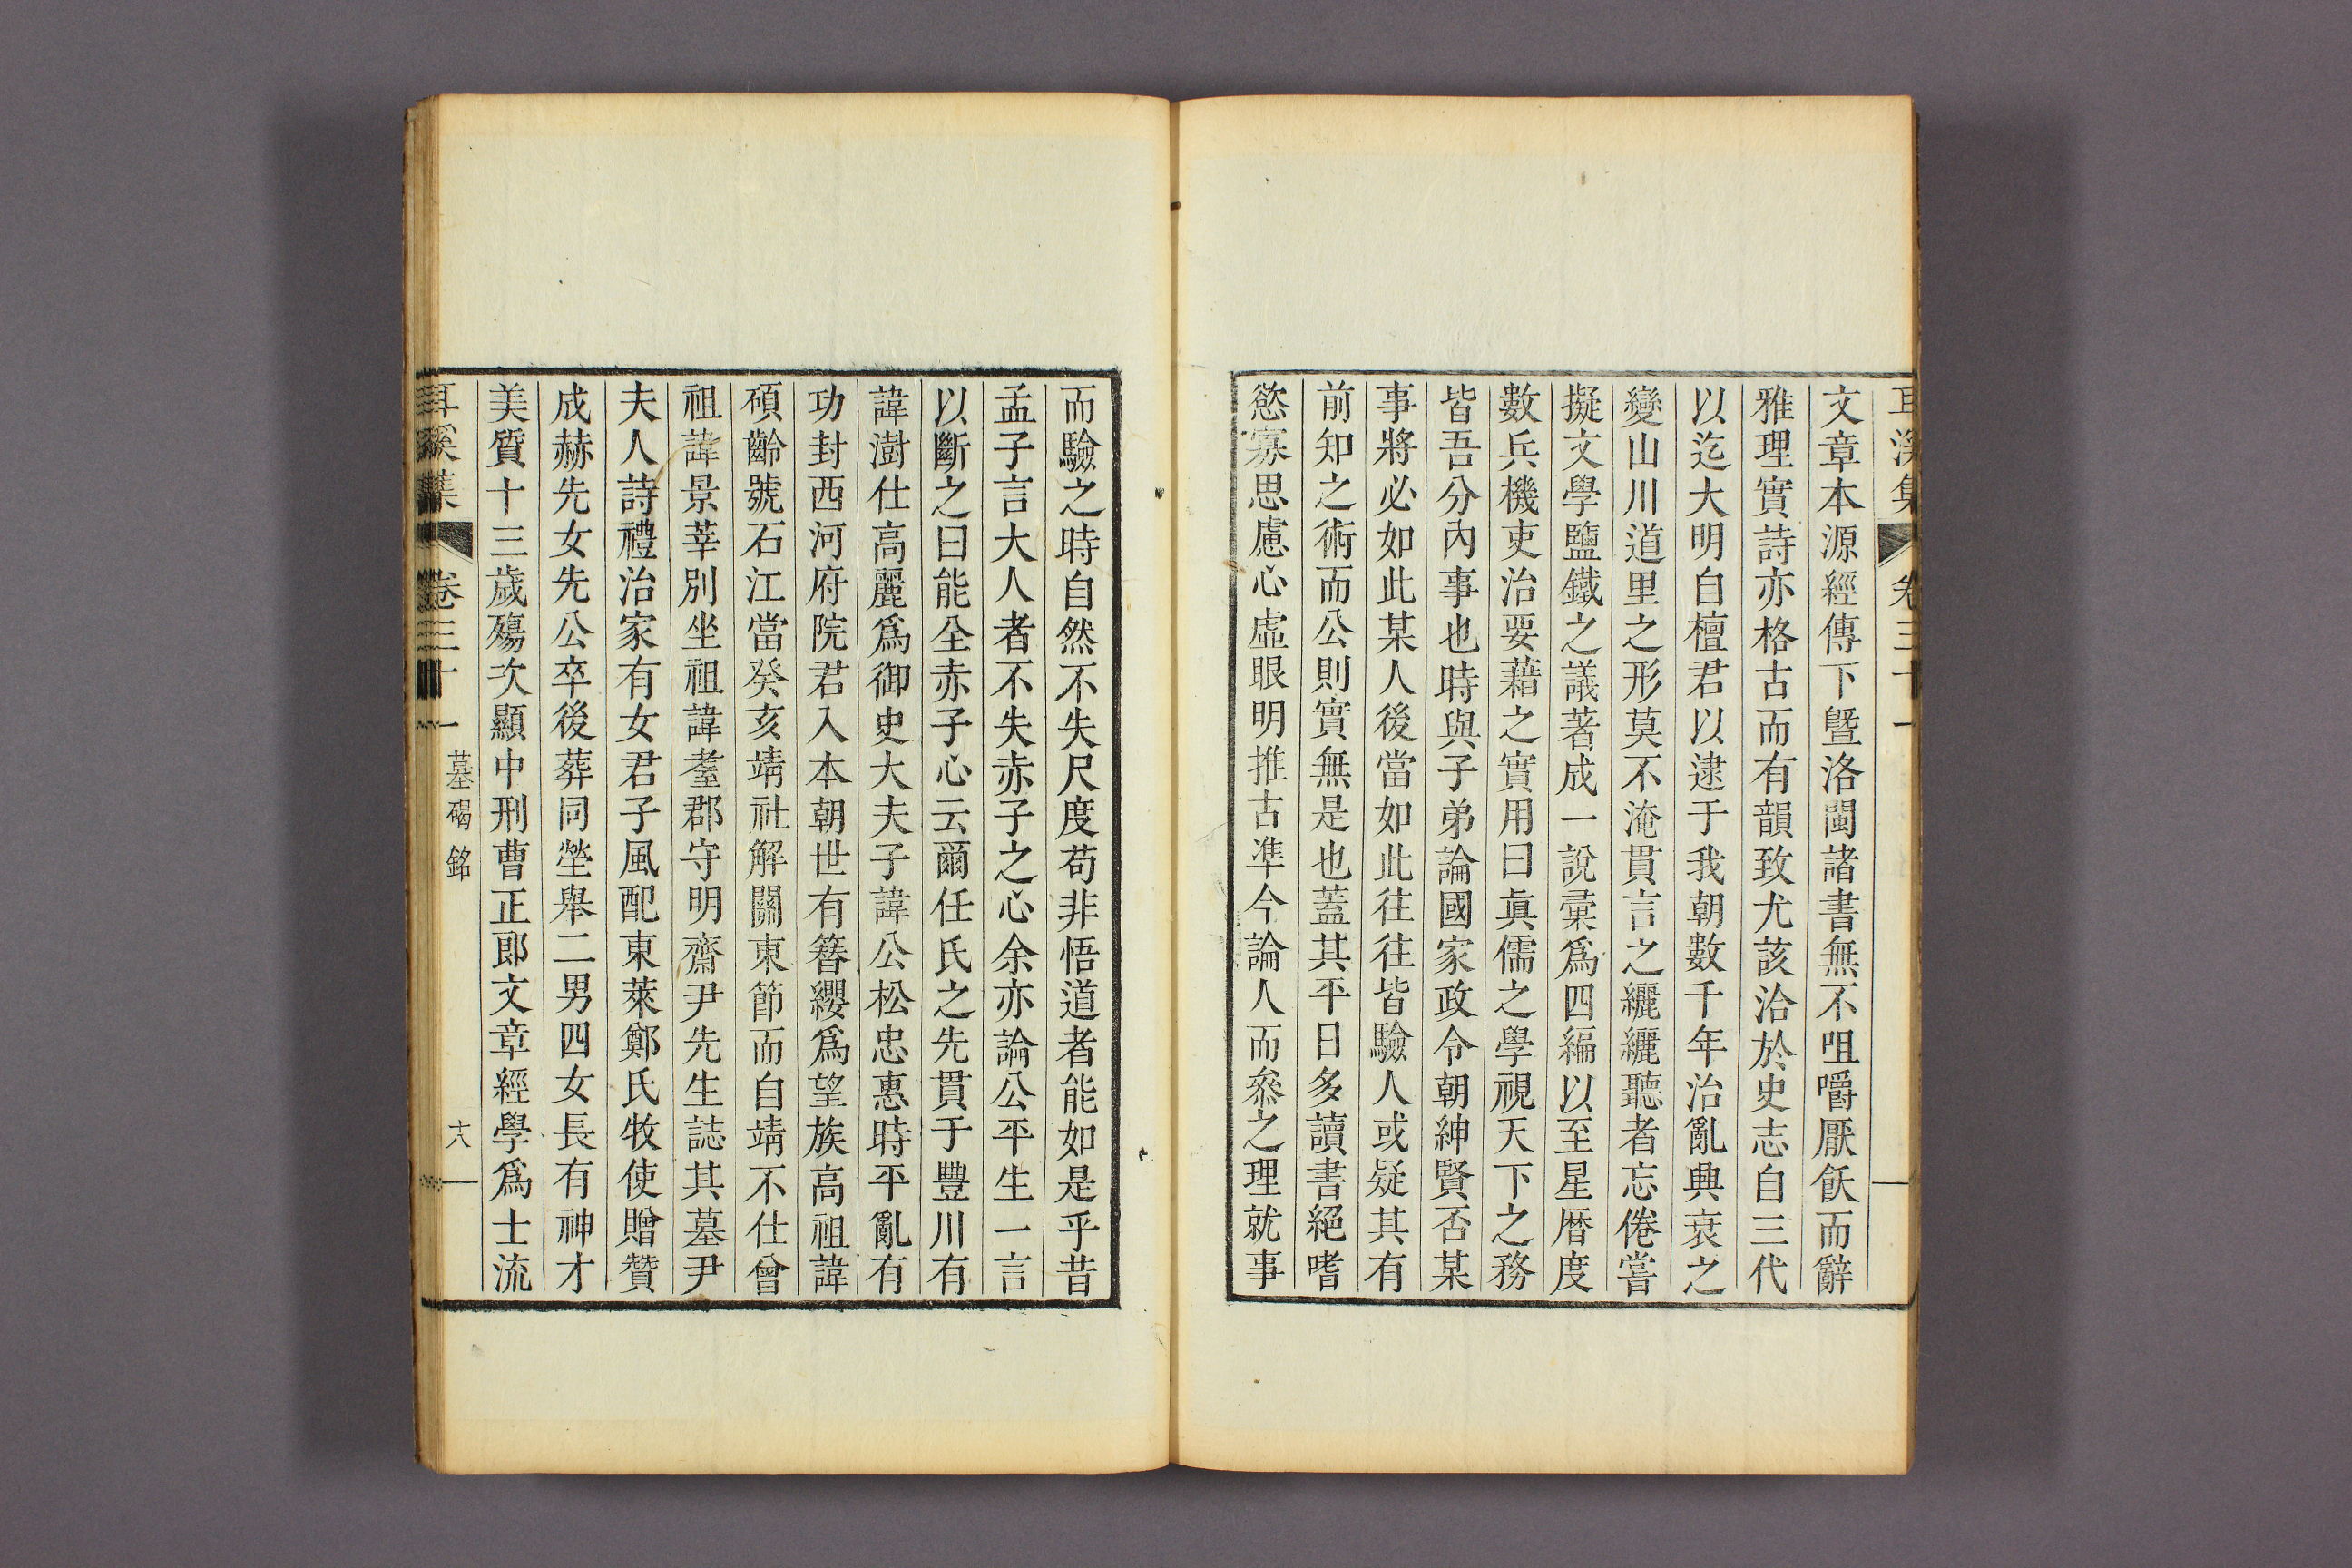 耳溪集 卷三十
文章本源經傳下曁洛閩諸書無不咀嚼厭飫而辭
雅理實詩亦格古而有韻致尤該洽於史志自三代
以迄大明自檀君以逮于我朝數千年治亂興衰之
變山川道里之形莫不淹貫言之纚纚聽者忘倦嘗
擬文學鹽鐵之議著成一說彙爲四編以至星曆度
數兵機吏治要藉之實用曰眞儒之學視天下之務
皆吾分內事也時與子弟論國家政令朝紳賢否某
事將必如此某人後當如此往往皆驗人或疑其有
前知之術而公則實無是也蓋其平日多讀書絕嗜
慾寡思慮心虛眼明推古準今論人而叅之理就事
而驗之時自然不失尺度苟非悟道者能如是乎昔
孟子言大人者不失赤子之心余亦論公平生一言
以斷之曰能全赤子心云爾任氏之先貫于豐川有
諱澍仕高麗爲御史大夫子諱公松忠惠時平亂有
功封西河府院君入本朝世有簪纓爲望族高祖諱
碩齡號石江當癸亥靖社解關東節而自靖不仕曾
祖諱景莘別坐祖諱耋郡守明齋尹先生誌其墓尹
夫人詩禮治家有女君子風配東萊鄭氏牧使贈贊
成赫先女先公卒後葬同塋舉二男四女長有神才
美質十三歲殤次顯中刑曹正郎文章經學爲士流
耳溪集 卷三十 墓碣銘 十八